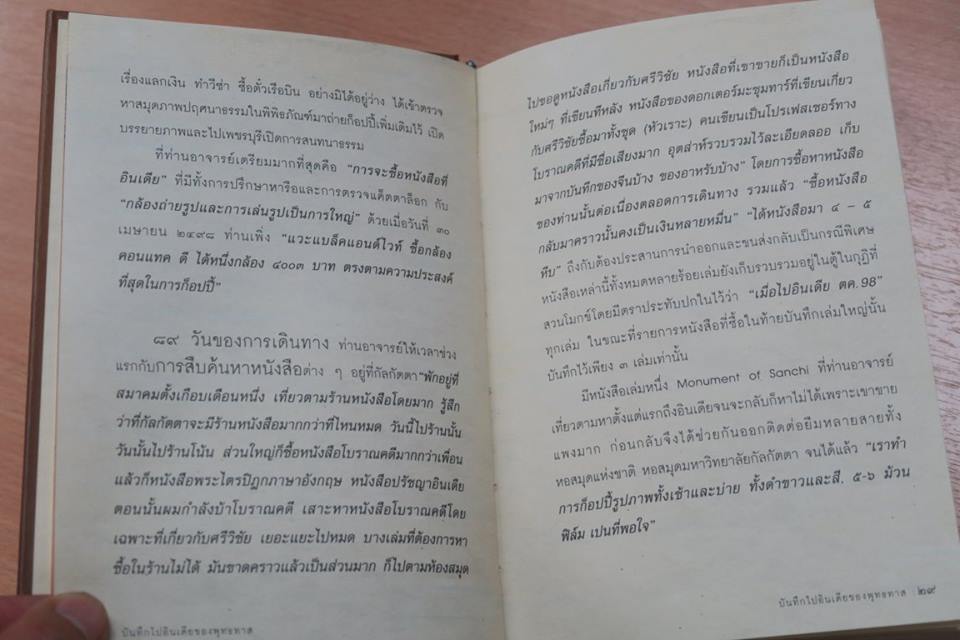 เรื่องแลกเงิน ทำวีซ่า ซื้อตั๋วเรือบิน อย่างมิได้อยู่ว่าง ได้เช้าตรวจ
หาสมุดภาพปฤศนาธรรมในพิพิธภัณฑ์มาถ่ายก็อปปี้เพิ่มเติมไว้ เปิด
บรรยายภาพและไปเพชรบุรีเปิดการสนทนาธรรม
ที่ท่านอาจารย์เตรียมมากที่สุดคือ “การจะซื้อหนังสือที่
อินเดีย” ที่มีทั้งการปรึกษาหารือและการตรวจแค็ตตาล็อก กับ
“กล้องถ่ายรูปและการเล่นรูปเป็นการใหญ่” ด้วยเมื่อวันที่ ๓๐
เมษายน ๒๔๙๘ ท่านเพิ่ง “แวะแบล็คแอนด์ไวท์ ซื้อกล้อง
คอนแทค ดี ได้หนึ่งกล้อง ๔๐๐๓ บาท ตรงตามความประสงค์
ที่สุดในการก็อปปี้”
๘๙ วันของการเดินทาง ท่านอาจารย์ให้เวลาช่วง
แรกกับการสืบค้นหาหนังสือต่าง ๆ อยู่ที่กัลกัตตา“พักอยู่ที่
สมาคมตั้งเกือบเดือนหนึ่ง เที่ยวตามร้านหนังสือโดยมาก รู้สึก
ว่าที่กัลกัตตาจะมีร้านหนังสือมากกว่าที่ไหนหมด วันนี้ไปร้านนั้น
วันนั้นไปร้านโน้น ส่วนใหญ่ก็ซื้อหนังสือโบราณคดีมากกว่าเพื่อน
แล้วก็หนังสือพระไตรปิฎกภาษาอังกฤษ หนังสือปรัชญาอินเดีย
ตอนนั้นผมกำลังบ้าโบราณคดี เสาะหาหนังสือโบราณคดีโดย
เฉพาะที่เกี่ยวกับศรีวิชัย เยอะแยะไปหมด บางเล่มที่ต้องการหา
ซื้อในร้านไม่ได้ มันขาดคราวแล้วเป็นส่วนมาก ก็ไปตามห้องสมุด
บันทึกไปอินเดียของพุทธทาส
ไปขอดูหนังสือเกี่ยวกับศรีวิชัย หนังสือที่เขาขายก็เป็นหนังสือ
ใหม่ๆ ที่เขียนทีหลัง หนังสือของดอกเตอร์มะชุมทาร์ที่เขียนเกี่ยว
กับศรีวิชัยซื้อมาทั้งชุด (หัวเราะ) คนเขียนเป็นโปรเฟสเซอร์ทาง
โบราณคดีที่มีชื่อเสียงมาก อุตส่าห์รวบรวมไว้ละเอียดลออ เก็บ
มาจากบันทึกของจีนบ้าง ของอาหรับบ้าง” โดยการซื้อหาหนังสือ
ของท่านนั้นต่อเนื่องตลอดการเดินทาง รวมแล้ว “ซื้อหนังสือ
กลับมาคราวนั้นคงเป็นเงินหลายหมื่น” “ได้หนังสือมา ๔ – ๕
หีบ” ถึงกับต้องประสานการนำออกและขนส่งกลับเป็นกรณีพิเศษ
หนังสือเหล่านี้ทั้งหมดหลายร้อยเล่มยังเก็บรวบรวมอยู่ในตู้ในกุฏิที่
สวนโมกข์โดยมีตราประทับปกในไว้ว่า “เมื่อไปอินเดีย ตค.98”
ทุกเล่ม ในขณะที่รายการหนังสือที่ซื้อในท้ายบันทึกเล่มใหญ่นั้น
บันทึกไว้เพียง ๓ เล่มเท่านั้น
มีหนังสือเล่มหนึ่ง Monument of Sanchi ที่ท่านอาจารย์
เที่ยวตามหาตั้งแต่แรกถึงอินเดียจนจะกลับก็หาไม่ได้เพราะเขาขาย
แพงมาก ก่อนกลับจึงได้ช่วยกันออกติดต่อยืมหลายสายทั้ง
หอสมุดแห่งชาติ หอสมุดมหาวิทยาลัยกัลกัตตา จนได้แล้ว “เราทำ
การก็อปปี้รูปภาพทั้งเช้าและบ่าย ทั้งดำขาวและสี. ๕-๖ ม้วน
ฟิล์ม เปนที่พอใจ”
บันทึกไปอินเดียของพุทธทาส ๒๙